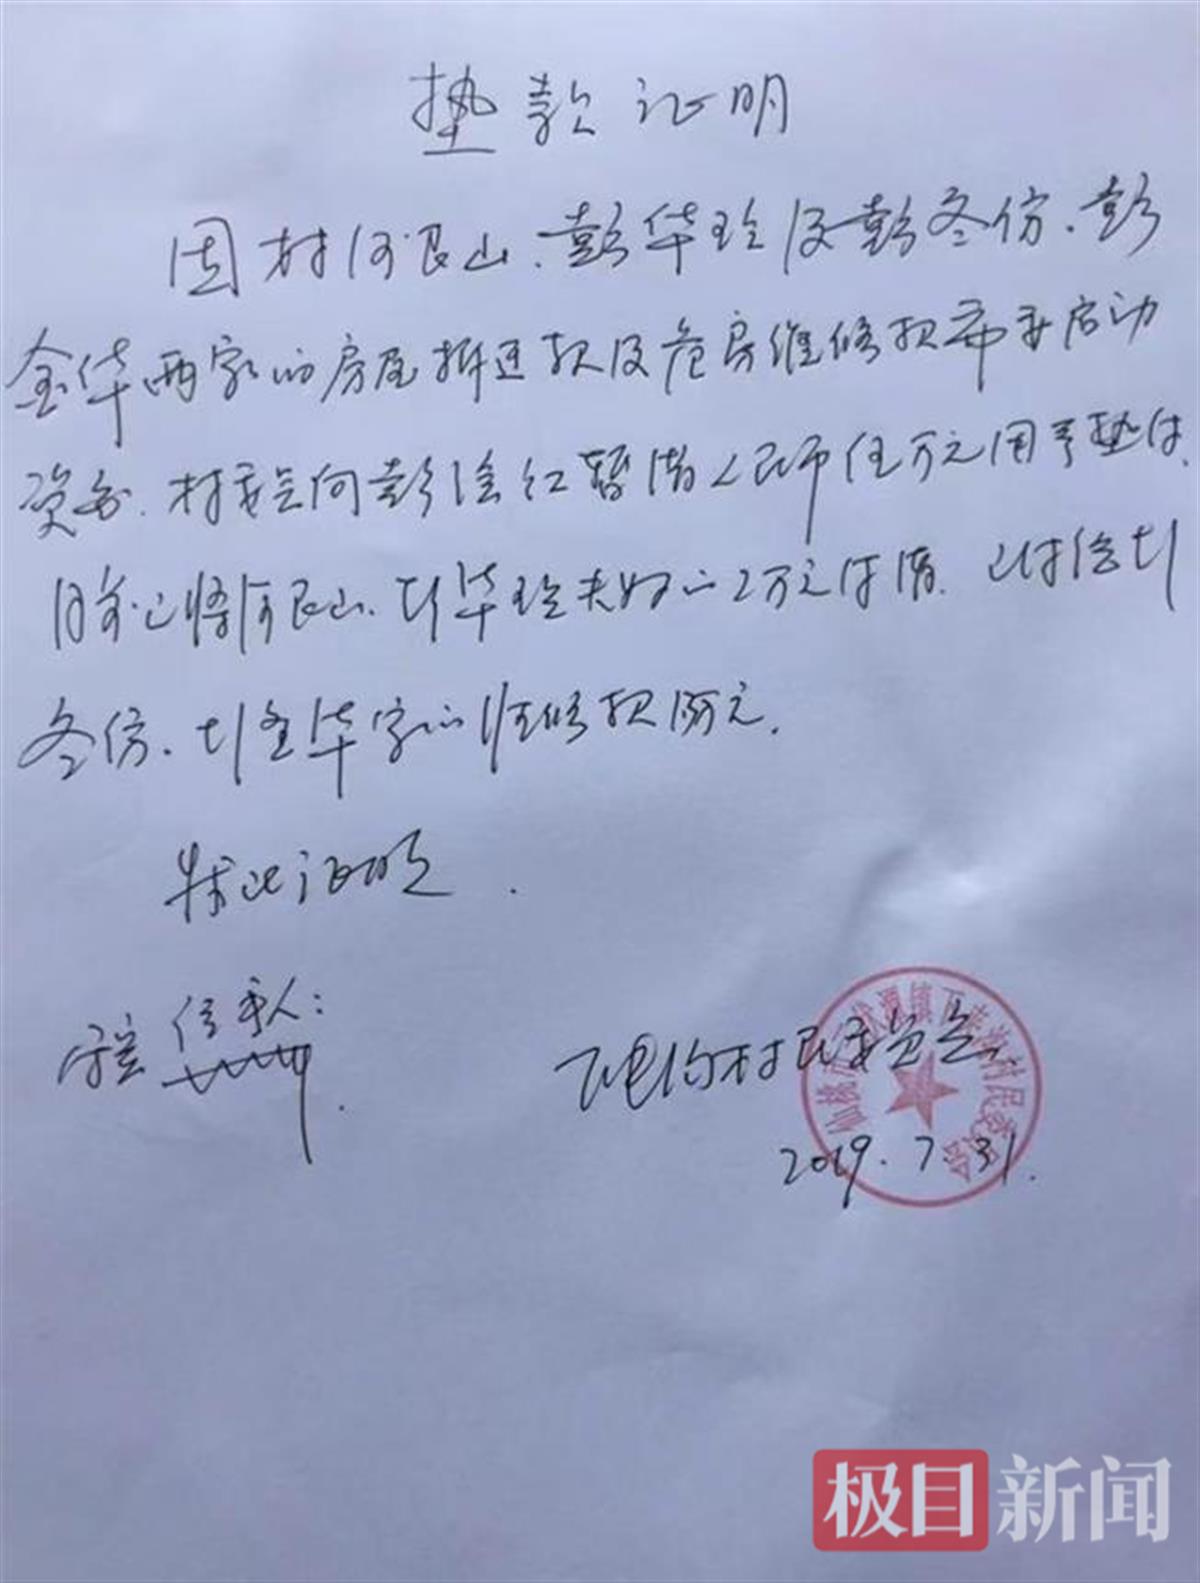 垫款证明
因村何良山、彭华珍及彭冬仿、彭
金华两家的房屋拆迁款及危房维修款需要启动
资金.村委会向彭涂红暂借人民币伍万元用于垫付.
目前已将何良山、彭华珍夫妇的2万元付清.以付给彭
冬仿、彭金华家的维修款
特此证明.
经手人:
村民委员会
2019.7.31.
仙桃市 镇下 村民委员会
极目新闻